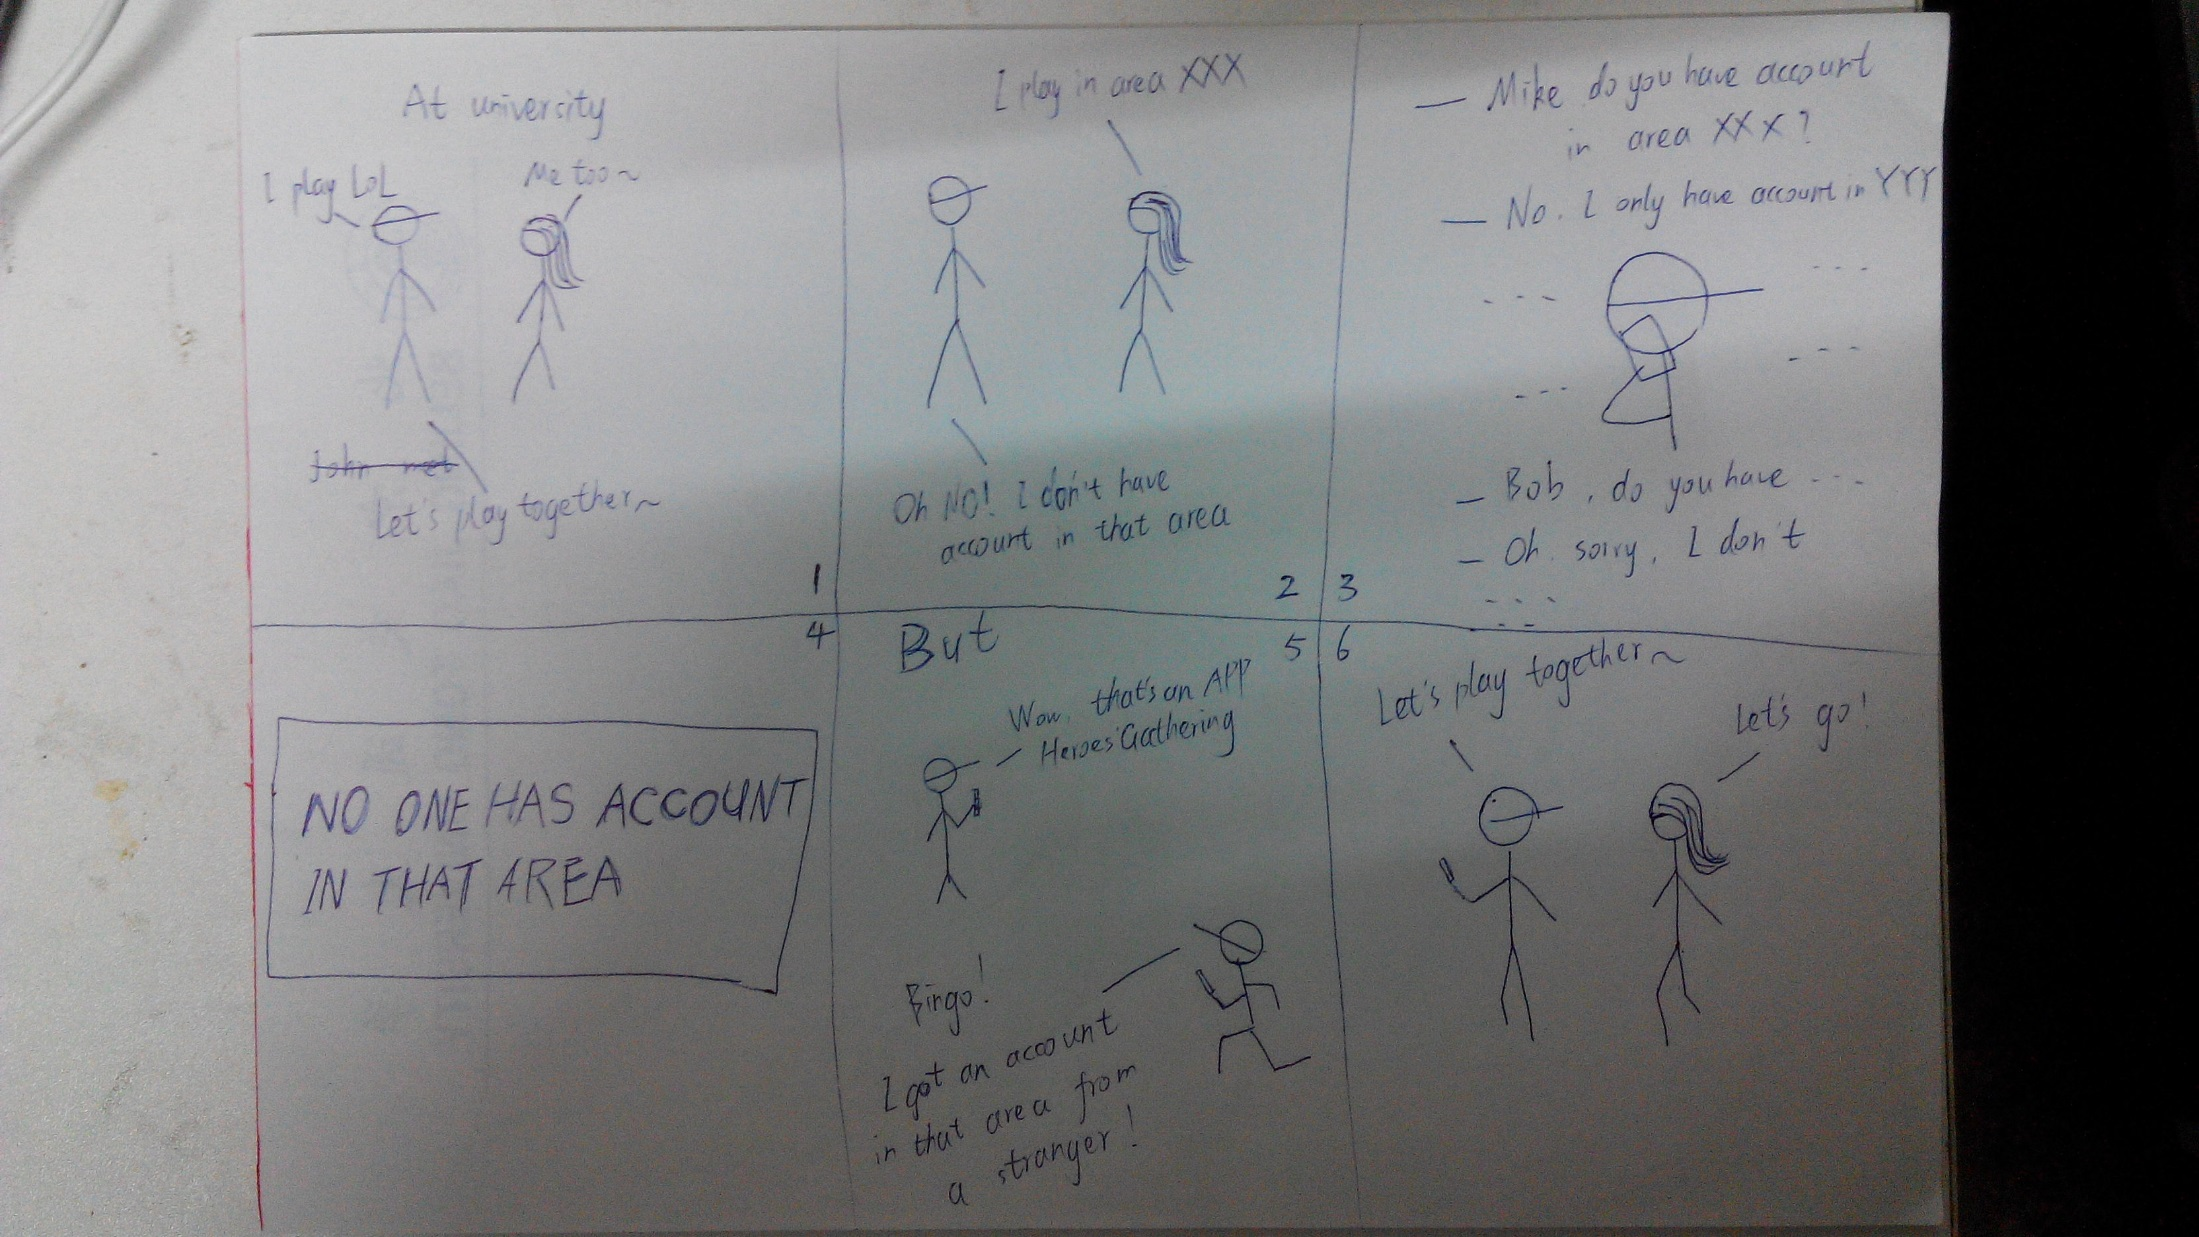 At university
I play LoL
Me too~
John met
Let's play together~
1
I play in area XXX
Oh NO! I don't have
account in that area
2
— Mike do you have account
in area XXX?
— No. I only have account in YYY
- - -
- - -
- - -
- - -
— Bob, do you have - - -
— Oh sorry, I don't
- - -
- - -
3
4
NO ONE HAS ACCOUNT
IN THAT AREA
But
5
Wow, that's an APP
Heroes' Gathering
Bingo!
I got an account
in that area from
a stranger!
6
Let's play together~
Let's go!